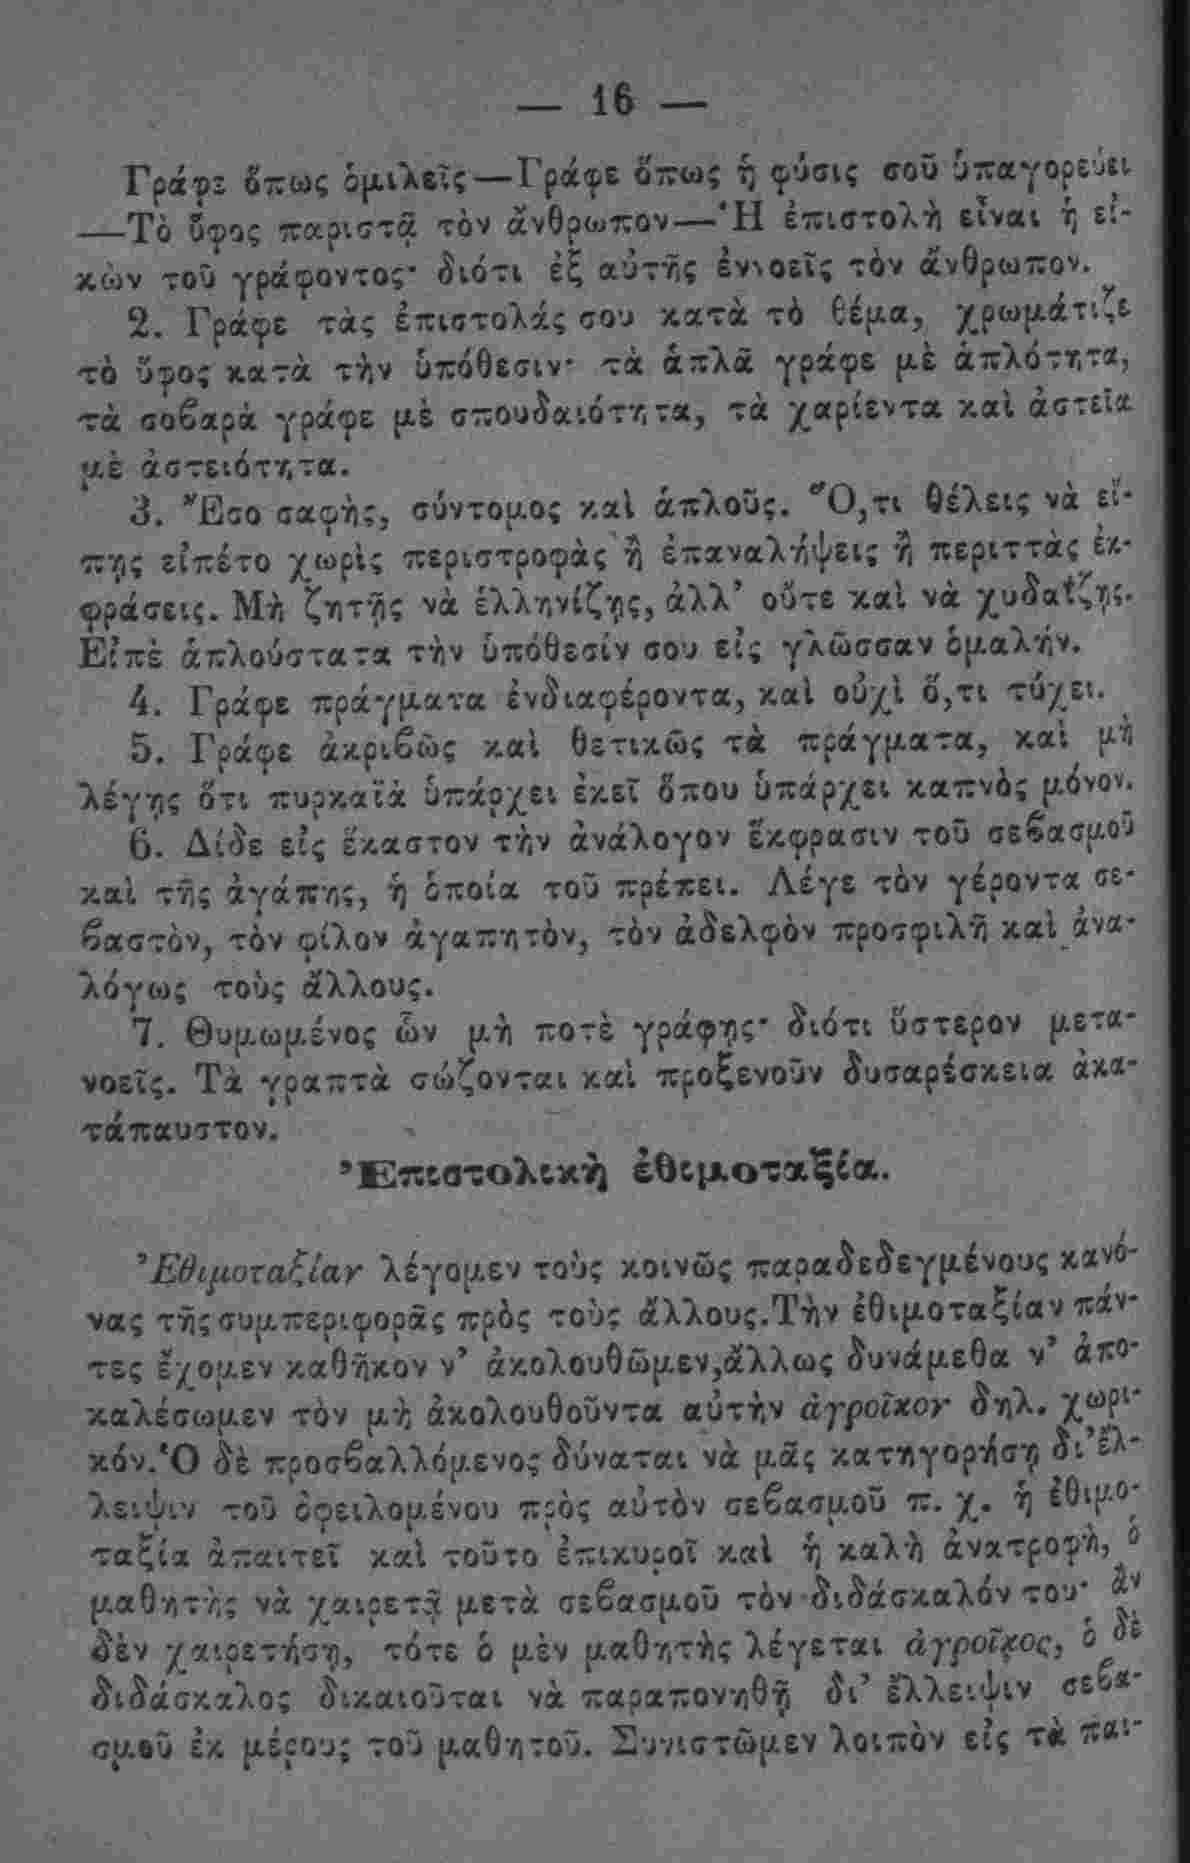 — 16 —
Γράφε ὅπως ὁμιλεῖς—Γράφε ὅπως ἡ φύσις σοῦ ὑπαγορεύει
—Τὸ ὕφος παριστᾷ τὸν ἄνθρωπον—Ἡ ἐπιστολὴ εἶναι ἡ εἰ-
κὼν τοῦ γράφοντος· διότι ἐξ αὐτῆς ἐννοεῖς τὸν ἄνθρωπον.
2. Γράφε τὰς ἐπιστολάς σου κατὰ τὸ θέμα, χρωμάτιζε
τὸ ὕφος κατὰ τὴν ὑπόθεσιν· τὰ ἁπλᾶ γράφε μὲ ἁπλότητα,
τὰ σοβαρὰ γράφε μὲ σπουδαιότητα, τὰ χαρίεντα καὶ ἀστεῖα
μὲ ἀστειότητα.
3. Ἔσο σαφὴς, σύντομος καὶ ἁπλοῦς. Ὅ,τι θέλεις νὰ εἴ-
πῃς εἰπέτο χωρὶς περιστροφὰς ἢ ἐπαναλήψεις ἢ περιττὰς ἐκ-
φράσεις. Μὴ ζητῇς νὰ ἑλληνίζῃς, ἀλλ’ οὔτε καὶ νὰ χυδαΐζῃς.
Εἰπὲ ἁπλούστατα τὴν ὑπόθεσίν σου εἰς γλῶσσαν ὁμαλήν.
4. Γράφε πράγματα ἐνδιαφέροντα, καὶ οὐχὶ ὅ,τι τύχει.
5. Γράφε ἀκριβῶς καὶ θετικῶς τὰ πράγματα, καὶ μὴ
λέγῃς ὅτι πυρκαϊὰ ὑπάρχει ἐκεῖ ὅπου ὑπάρχει καπνὸς μόνον.
6. Δίδε εἰς ἕκαστον τὴν ἀνάλογον ἔκφρασιν τοῦ σεβασμοῦ
καὶ τῆς ἀγάπης, ἡ ὁποία τοῦ πρέπει. Λέγε τὸν γέροντα σε-
βαστὸν, τὸν φίλον ἀγαπητὸν, τὸν ἀδελφὸν προσφιλῆ καὶ ἀνα-
λόγως τοὺς ἄλλους.
7. Θυμωμένος ὢν μὴ ποτὲ γράφῃς· διότι ὕστερον μετα-
νοεῖς. Τὰ γραπτὰ σώζονται καὶ προξενοῦν δυσαρέσκεια ἀκα-
τάπαυστον.
Ἐπιστολικὴ ἐθιμοταξία.
Ἐθιμοταξίαν λέγομεν τοὺς κοινῶς παραδεδεγμένους κανό-
νας τῆς συμπεριφορᾶς πρὸς τοὺς ἄλλους. Τὴν ἐθιμοταξίαν πάν-
τες ἔχομεν καθῆκον ν’ ἀκολουθῶμεν, ἄλλως δυνάμεθα ν’ ἀπο-
καλέσωμεν τὸν μὴ ἀκολουθοῦντα αὐτὴν ἀγροῖκον δηλ. χωρι-
κόν. Ὁ δὲ προσβαλλόμενος δύναται νὰ μᾶς κατηγορήσῃ δι’ ἔλ-
λειψιν τοῦ ὀφειλομένου πρὸς αὐτὸν σεβασμοῦ π. χ. ἡ ἐθιμο-
ταξία ἀπαιτεῖ καὶ τοῦτο ἐπικυροῖ καὶ ἡ καλὴ ἀνατροφὴ, ὁ
μαθητὴς νὰ χαιρετᾷ μετὰ σεβασμοῦ τὸν διδάσκαλόν του· ἂν
δὲν χαιρετήσῃ, τότε ὁ μὲν μαθητὴς λέγεται ἀγροῖκος, ὁ δὲ
διδάσκαλος δικαιοῦται νὰ παραπονηθῇ δι’ ἔλλειψιν σεβα-
σμοῦ ἐκ μέρους τοῦ μαθητοῦ. Συνιστῶμεν λοιπὸν εἰς τὰ παι-